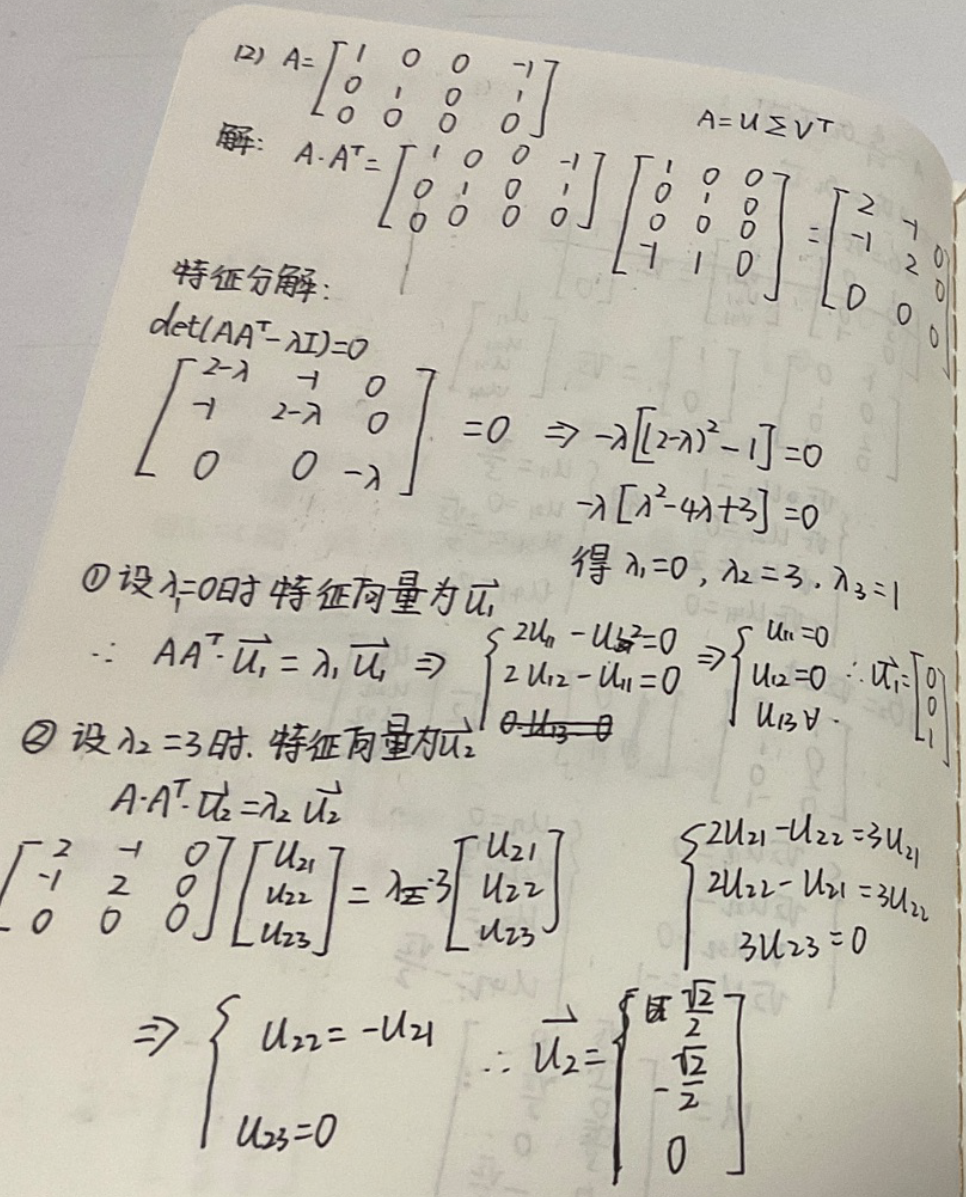 (2) A = [1 0 0 -1; 0 1 0 1; 0 0 0 0]
A = U Σ V^T
解: A·A^T = [1 0 0 -1; 0 1 0 1; 0 0 0 0] [1 0 0; 0 1 0; 0 0 0; -1 1 0] = [2 -1 0; -1 2 0; 0 0 0]
特征分解:
det(AA^T - λI) = 0
[2-λ -1 0; -1 2-λ 0; 0 0 -λ] = 0 ⇒ -λ[(2-λ)^2 - 1] = 0
-λ[λ^2 - 4λ + 3] = 0
得 λ1 = 0, λ2 = 3, λ3 = 1
① 设 λ1 = 0时 特征向量为 u1
∴ AA^T·u1 = λ1 u1 ⇒ { 2u11 - u12 = 0; 2u12 - u11 = 0 ⇒ { u11 = 0; u12 = 0; u13 ∀. ∴ u1 = [0; 0; 1]
② 设 λ2 = 3时. 特征向量为 u2
A·A^T·u2 = λ2 u2
[2 -1 0; -1 2 0; 0 0 0] [u21; u22; u23] = 3 [u21; u22; u23]
{ 2u21 - u22 = 3u21; 2u22 - u21 = 3u22; 3u23 = 0
⇒ { u22 = -u21; u23 = 0 ∴ u2 = [√2/2; -√2/2; 0]